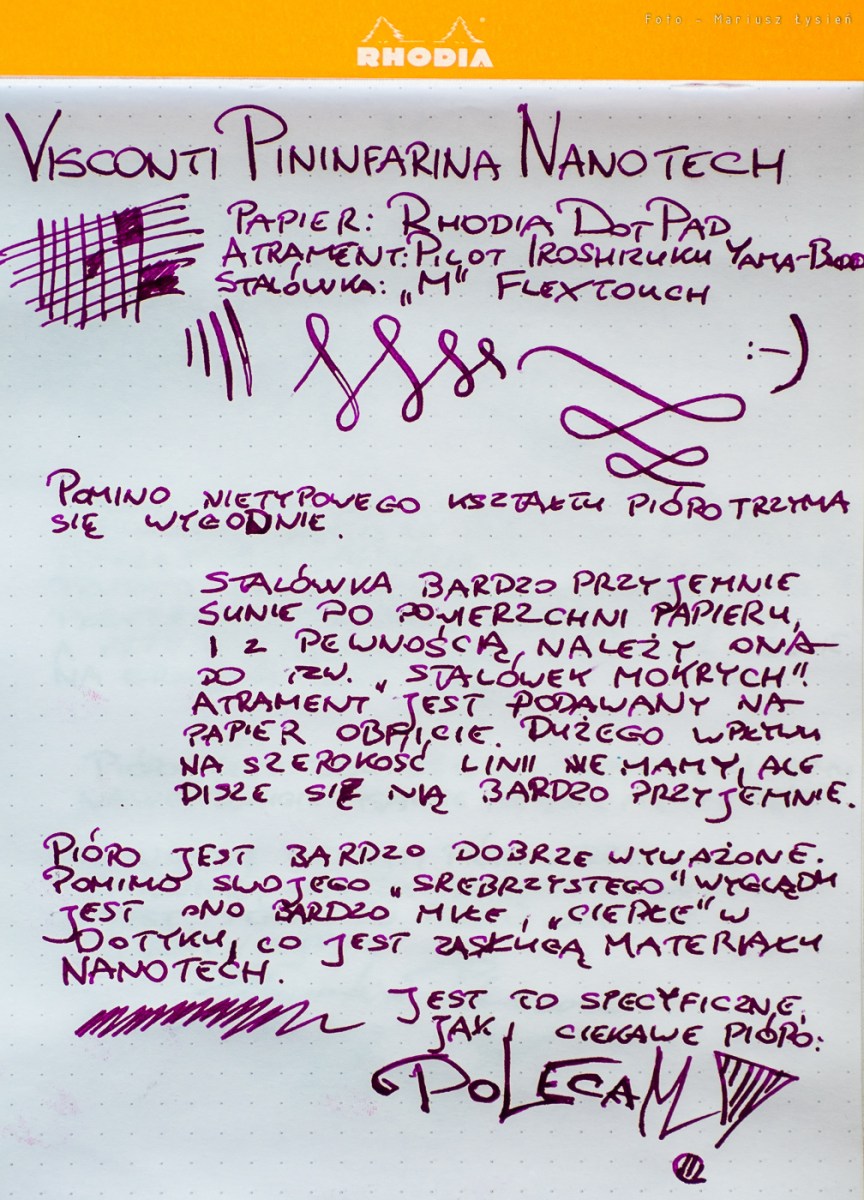 Foto - Mariusz Łysień
RHODIA
VISCONTI PININFARINA NANOTECH
PAPIER: RHODIA DOTPAD
ATRAMENT: PILOT IROSHIZUKU YAMA-BUDO
STALÓWKA: „M" FLEXTOUCH
:-)
POMINO NIETYPOWEGO KSZTAŁTU PIÓRO TRZYMA
SIĘ WYGODNIE.
STALÓWKA BARDZO PRZYJEMNIE
SUNIE PO POWIERZCHNI PAPIERU,
I Z PEWNOŚCIĄ, NALEŻY ONA
DO TZW. „STALÓWEK MOKRYCH".
ATRAMENT JEST PODAWANY NA
PAPIER OBFICIE. DUŻEGO WPŁYWU
NA SZEROKOŚĆ LINII NIE MAMY, ALE
PISZE SIĘ NIĄ BARDZO PRZYJEMNIE.
PIÓRO JEST BARDZO DOBRZE WYWAŻONE.
POMIMO SWOJEGO „SREBRZYSTEGO" WYGLĄDU
JEST ONO BARDZO MIŁE, „CIEPŁE" W
DOTYKU, CO JEST ZASŁUGĄ MATERIAŁU
NANOTECH.
JEST TO SPECYFICZNE,
JAK I CIEKAWE PIÓRO:
POLECAM!